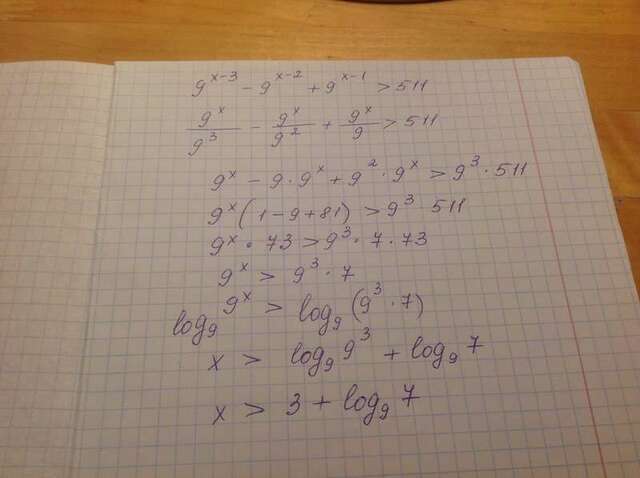 9^(x-3) - 9^(x-2) + 9^(x-1) > 511
9^x/9^3 - 9^x/9^2 + 9^x/9 > 511
9^x - 9 · 9^x + 9^2 · 9^x > 9^3 · 511
9^x (1 - 9 + 81) > 9^3 · 511
9^x · 73 > 9^3 · 7 · 73
9^x > 9^3 · 7
log_9 9^x > log_9 (9^3 · 7)
x > log_9 9^3 + log_9 7
x > 3 + log_9 7